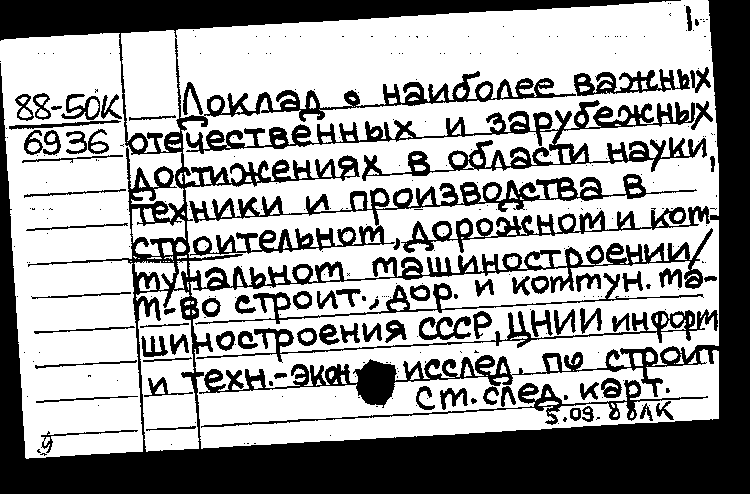 1.
88-50К
6936
Доклад о наиболее важных
отечественных и зарубежных
достижениях в области науки,
техники и производства в
строительном, дорожном и ком-
мунальном машиностроении/
М-во строит., дор. и коммун. ма-
шиностроения СССР, ЦНИИ информ
и техн.-экон исслед. по строит
см. след. карт.
5.09.88ЛК